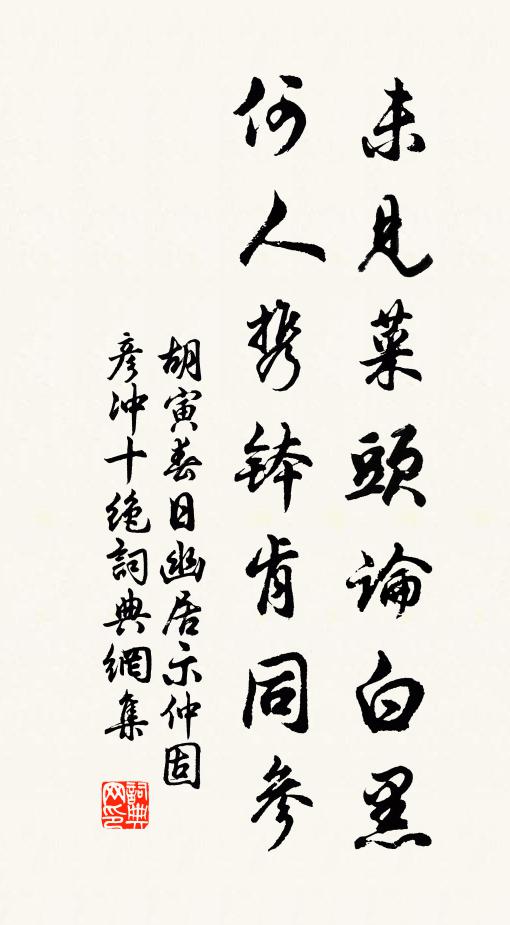 未見菜頭論白黑
何人携鉢肯同參
胡寅春日幽居示仲固
彥沖十絶詞典網集
詞典
网印